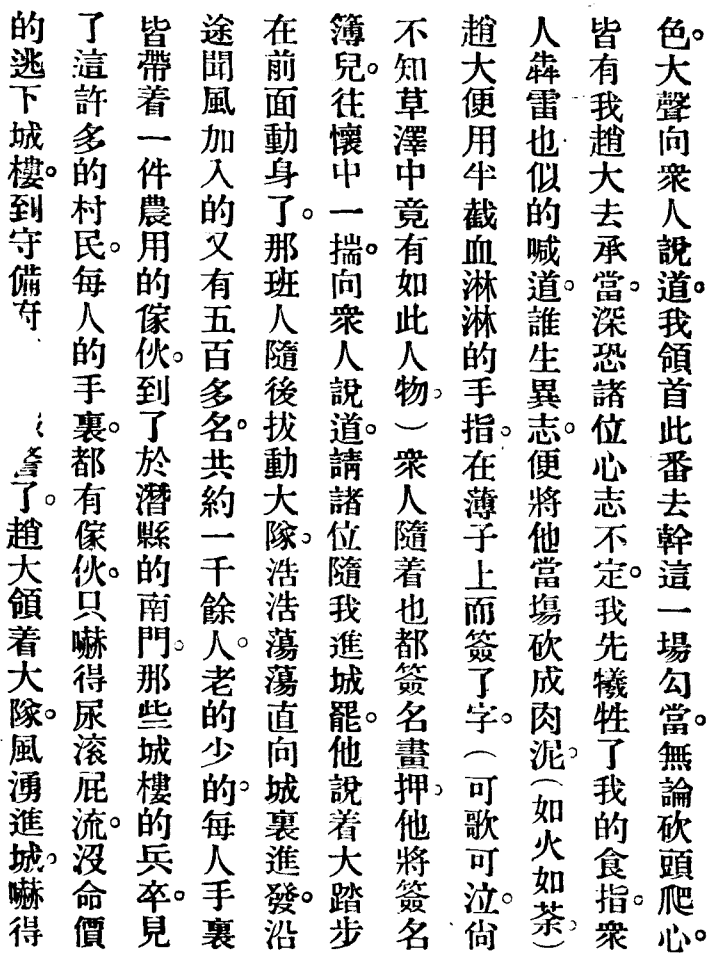 色。大聲向衆人說道。我領首此番去幹這一場勾當。無論砍頭爬心。
皆有我趙大去承當。深恐諸位心志不定。我先犧牲了我的食指。衆
人犇雷也似的喊道。誰生異志。便將他當塲砍成肉泥。（如火如荼）
趙大便用半截血淋淋的手指。在薄子上面簽了字。（可歌可泣。尙
不知草澤中竟有如此人物。）衆人隨着也都簽名畫押。他將簽名
簿兒。往懷中一揣。向衆人說道。請諸位隨我進城罷。他說着大踏步
在前面動身了。那班人隨後拔動大隊。浩浩蕩蕩直向城裏進發。沿
途聞風加入的又有五百多名。共約一千餘人。老的少的。每人手裏
皆帶着一件農用的傢伙。到了於潛縣的南門。那些城樓的兵卒。見
了這許多的村民。每人的手裏。都有傢伙。只嚇得尿滾屁流。沒命價
的逃下城樓。到守備府 了。趙大領着大隊。風湧進城。嚇得